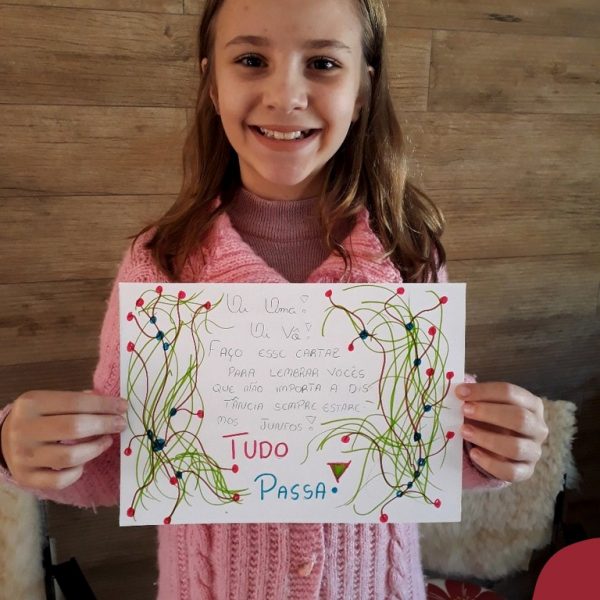 Oi Oma!
Oi Vô!
FAÇO ESSE CARTAZ
PARA LEMBRAR VOCÊS
QUE NÃO IMPORTA A DIS
TÂNCIA SEMPRE ESTARE-
MOS JUNTOS!
TUDO
PASSA!